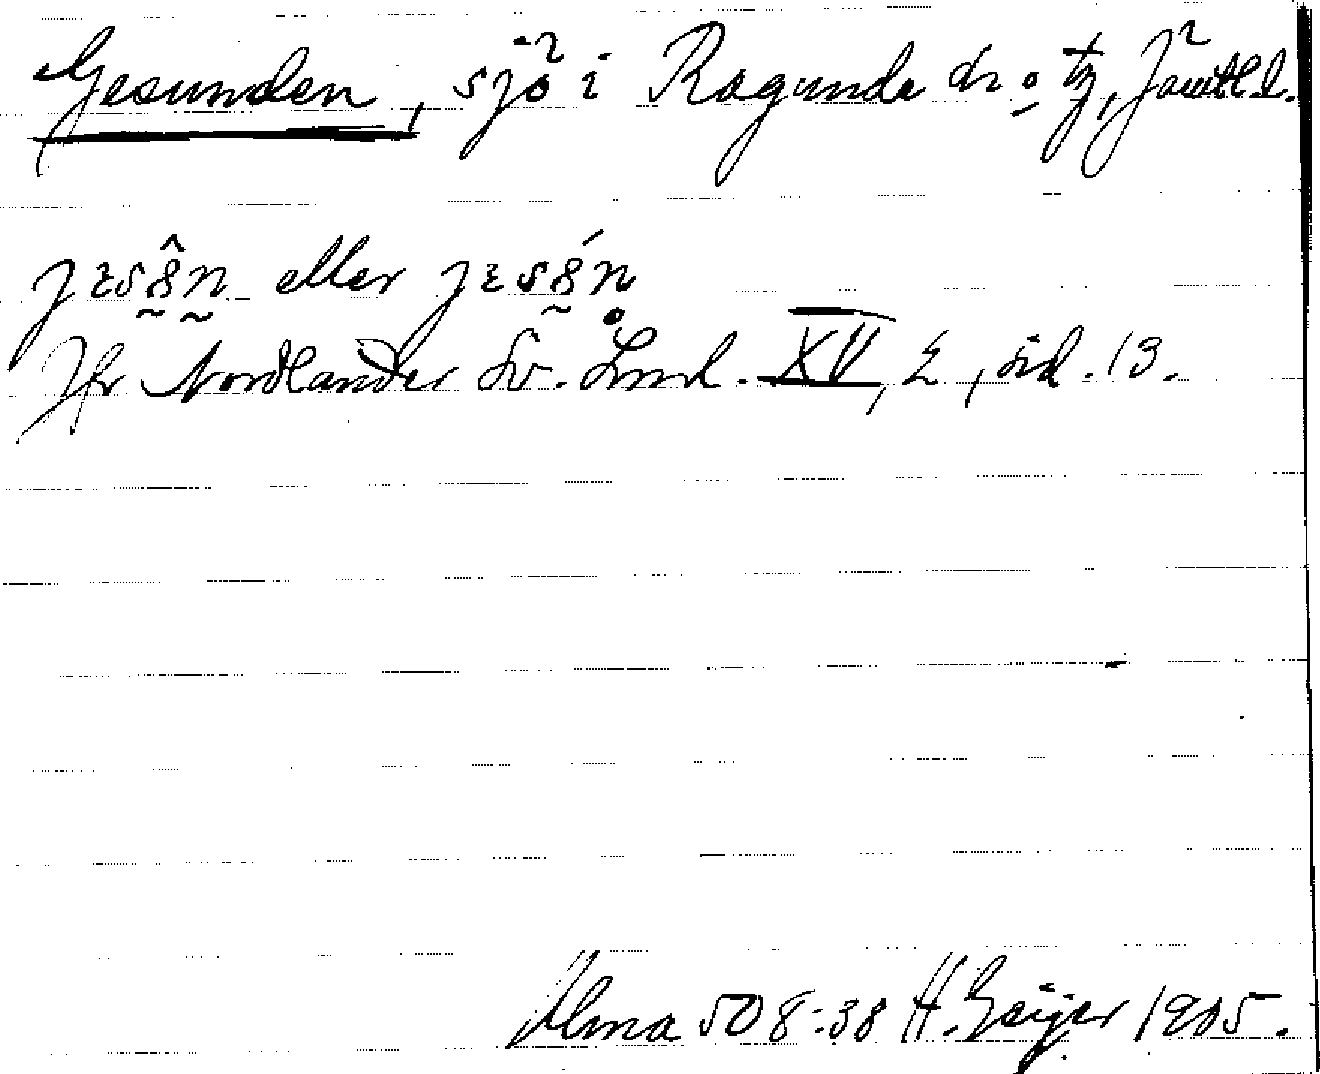 Gesunden, sjö i Ragunde sn o. tg, Jämtl l.
jɛsŝn eller jɛsśn
Jfr Nordlander Sv. Lmd. XV, 2, sid. 13.
Ulma 508:38 H. Geijer 1905.